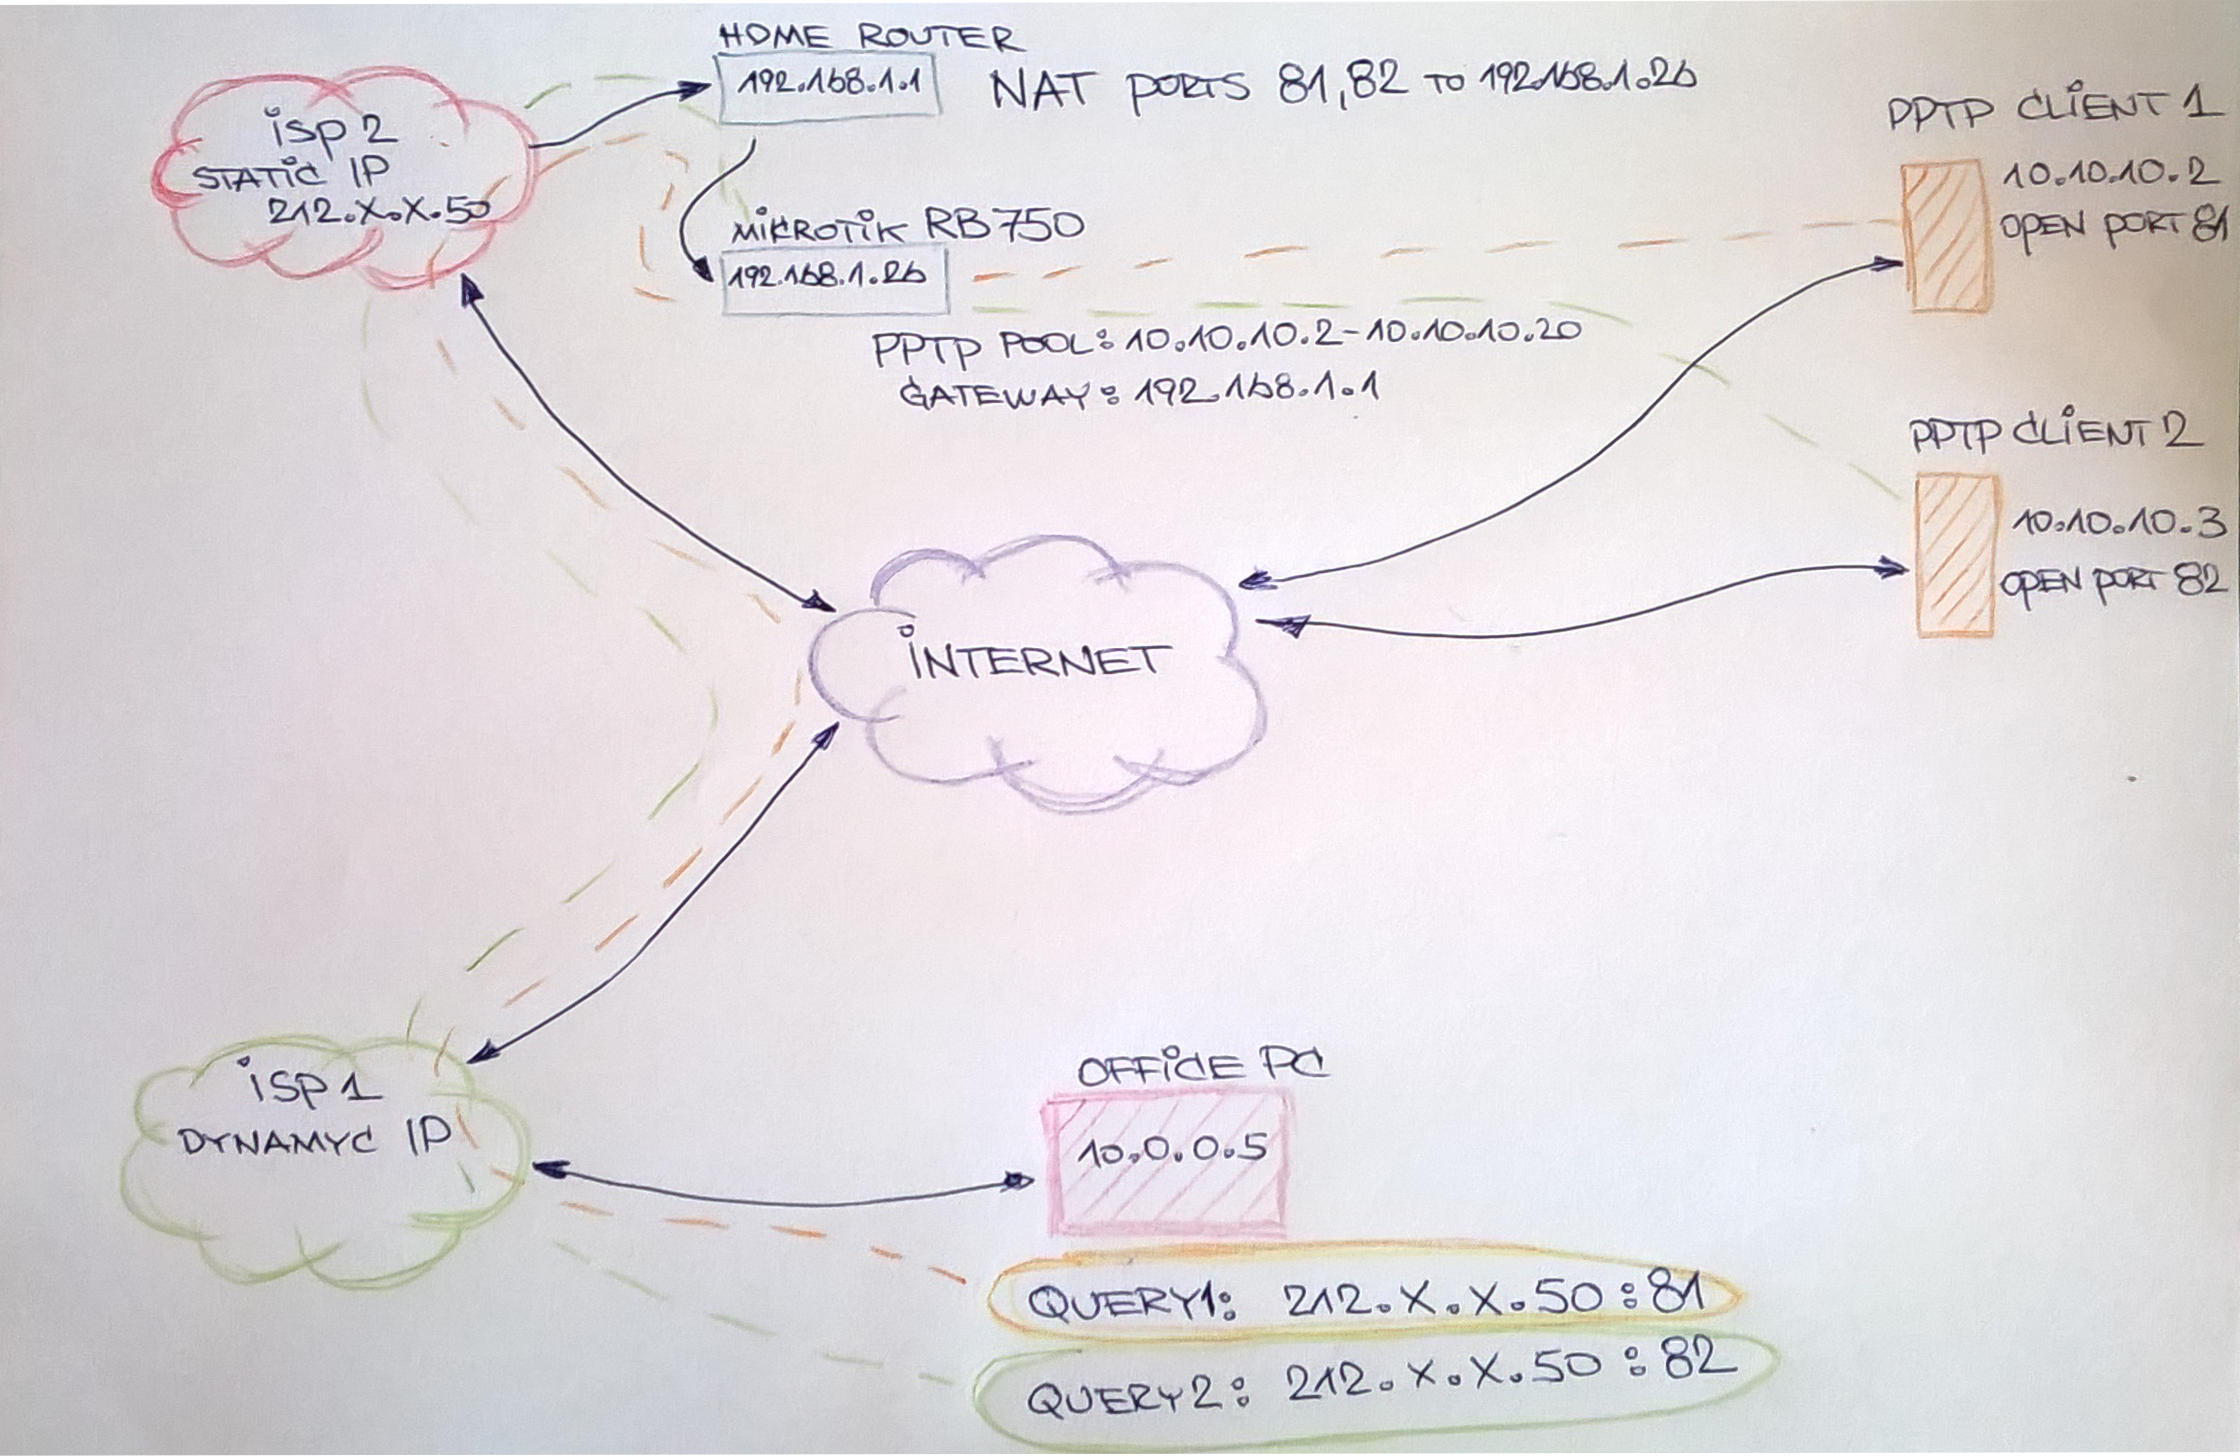 HOME ROUTER
192.168.1.1
NAT PORTS 81,82 TO 192.168.1.26
iSP 2
STATIC IP
212.X.X.50
PPTP CLiENT 1
10.10.10.2
OPEN PORT 81
MiKROTiK RB750
192.168.1.26
PPTP POOL: 10.10.10.2-10.10.10.20
GATEWAY: 192.168.1.1
PPTP CLiENT 2
10.10.10.3
OPEN PORT 82
iNTERNET
iSP 1
DYNAMYC IP
OFFiCE PC
10.0.0.5
QUERY1: 212.X.X.50:81
QUERY2: 212.X.X.50:82